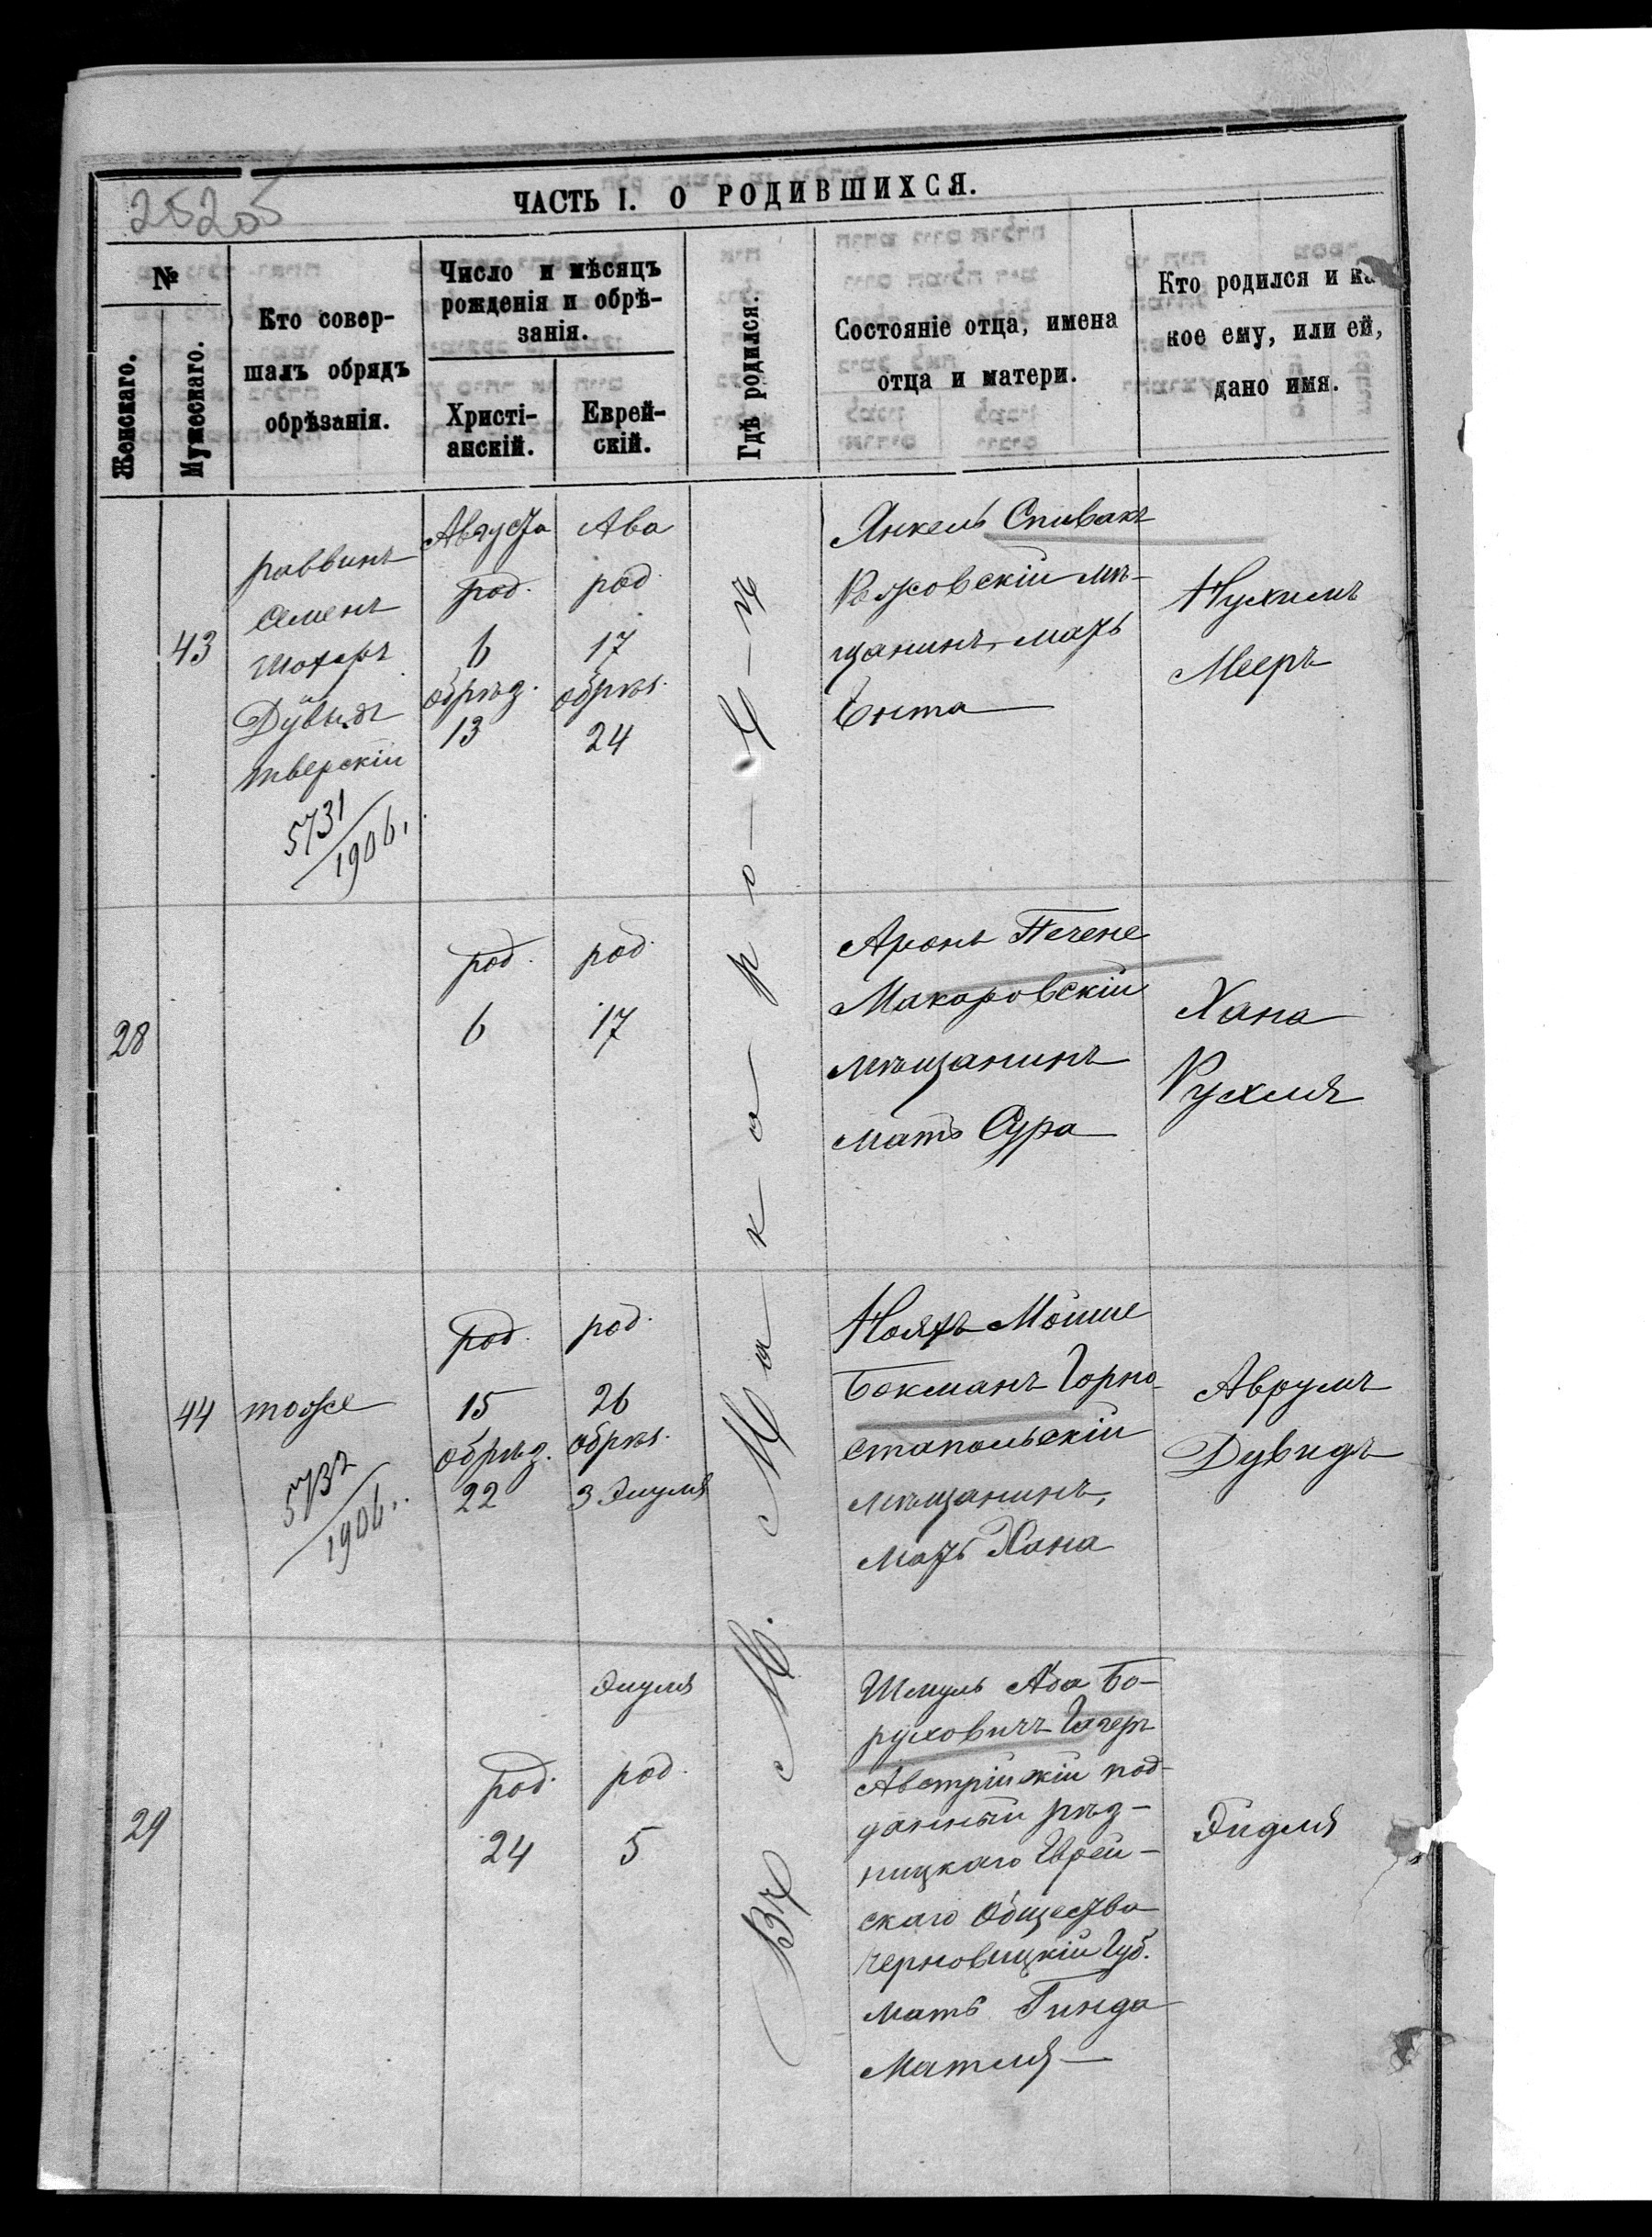 25205
ЧАСТЬ I. О РОДИВШИХСЯ.
№
Женскаго.
Мужескаго.
Кто совер-
шалъ обрядъ
обрѣзанія.
Число и мѣсяцъ
рожденія и обрѣ-
занія.
Христі-
анскій.
Еврей-
скій.
Гдѣ родился.
Состояніе отца, имена
отца и матери.
Кто родился и ка
кое ему, или ей,
дано имя.
Въ М. Макаровѣ
43
раввинъ
Дувидъ
тверскій
5731
1906.
Августа
род.
6
обрѣз.
13
Ава
род.
17
обрѣз.
24
Янкель Спивакъ
мѣ-
щанинъ, мать
Ента
Нухимъ
Мееръ
28
род.
6
род.
17
Аронъ Печене
Макаровскій
мѣщанинъ
мать Сура
Хана
Рухля
44
тоже
5732
1906..
род.
15
обрѣз.
22
род.
26
обрѣз.
3 Элуля
Мошие
Бекманъ Горно-
стапольскій
мѣщанинъ,
мать Хана
Аврумъ
Дувидъ
29
род.
24
Элуля
род.
5
Шмуль Аба Бо-
руховичъ Гагеръ
Австрійскій под-
данный
ницкаго Еврей-
скаго Общества
Черновицкій Губ.
мать Гинда
Матля
Эидля